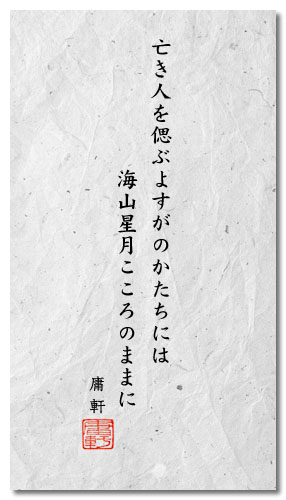 亡き人を偲ぶよすがのかたちには
海山星月こころのままに
庸軒